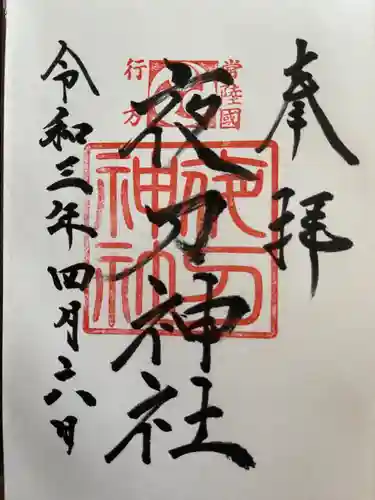 奉拝
常陸國
行方
夜刀神社
夜刀神社
令和三年四月六日